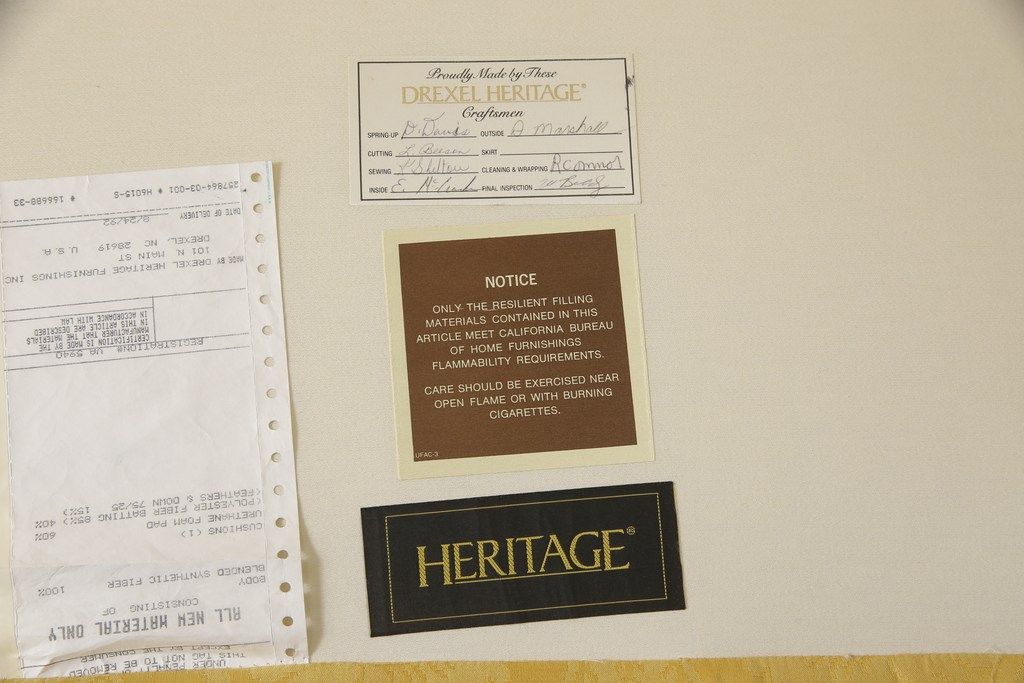 Proudly Made by These
DREXEL HERITAGE®
Craftsmen
SPRING-UP D. Davis OUTSIDE D Marshall
CUTTING L. Beeson SKIRT
SEWING Shelton CLEANING & WRAPPING R Connor
INSIDE E. FINAL INSPECTION
NOTICE
ONLY THE RESILIENT FILLING
MATERIALS CONTAINED IN THIS
ARTICLE MEET CALIFORNIA BUREAU
OF HOME FURNISHINGS
FLAMMABILITY REQUIREMENTS.
CARE SHOULD BE EXERCISED NEAR
OPEN FLAME OR WITH BURNING
CIGARETTES.
UFAC-3
HERITAGE®
UNDER PENALTY
THIS TAG NOT TO BE REMOVED
EXCEPT BY THE CONSUMER
ALL NEW MATERIAL ONLY
CONSISTING OF
BODY
BLENDED SYNTHETIC FIBER 100%
CUSHIONS (1)
URETHANE FOAM PAD 60%
(POLYESTER FIBER BATTING 85%) 40%
(FEATHERS & DOWN 75/25 15%)
REGISTRATION# VA 5940
CERTIFICATION IS MADE BY THE
MANUFACTURER THAT THE MATERIALS
IN THIS ARTICLE ARE DESCRIBED
IN ACCORDANCE WITH LAW
MADE BY DREXEL HERITAGE FURNISHINGS INC
101 N. MAIN ST
DREXEL, NC 28619 U.S.A.
DATE OF DELIVERY 8/24/92
257864-03-001 H6015-S # 166688-33